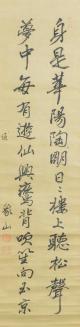 身是華陽陶明日日樓上聽松聲
夢中每有遊仙興鸞背吹笙向玉京